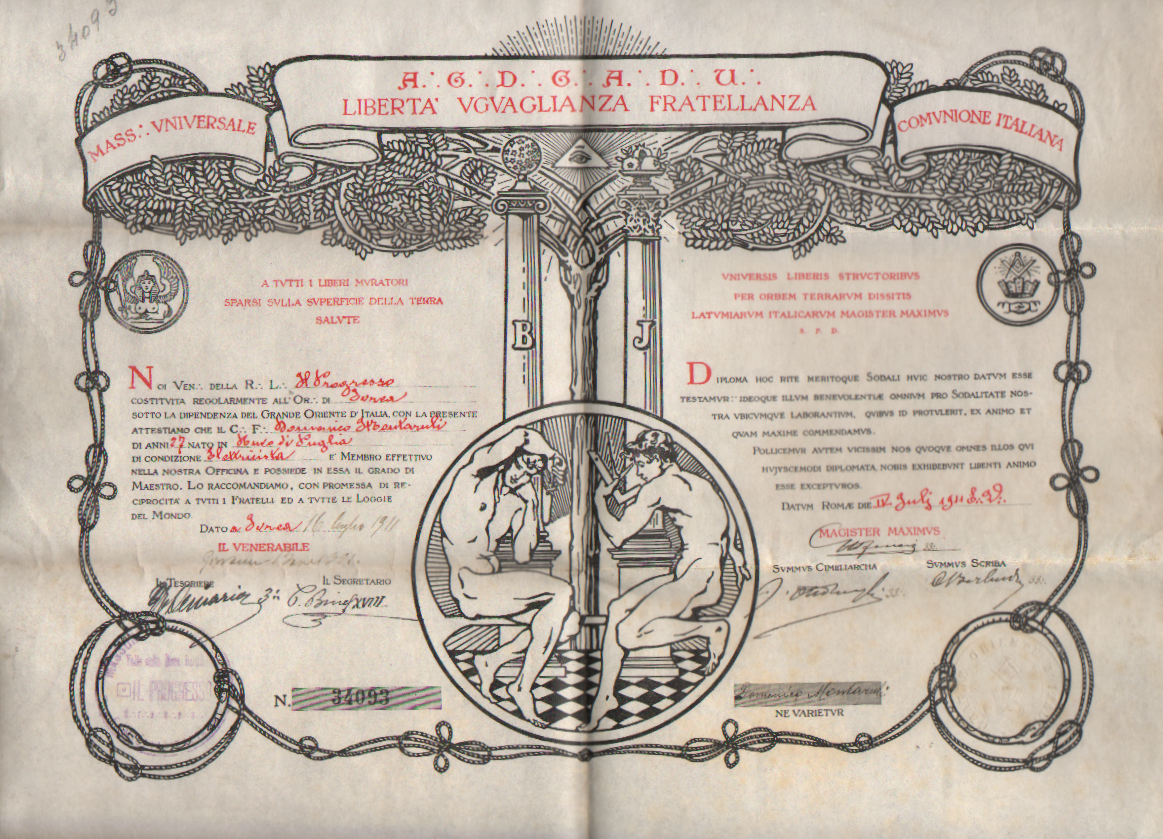 34093
A∴ G∴ D∴ G∴ A∴ D∴ U∴
LIBERTA' VGVAGLIANZA FRATELLANZA
MASS∴ VNIVERSALE
COMVNIONE ITALIANA
A TVTTI I LIBERI MVRATORI
SPARSI SVLLA SVPERFICIE DELLA TERRA
SALVTE
NOI VEN∴ DELLA R∴ L∴ Il Progresso
COSTITVITA REGOLARMENTE ALL'OR∴ DI
SOTTO LA DIPENDENZA DEL GRANDE ORIENTE D'ITALIA, CON LA PRESENTE
ATTESTIAMO CHE IL C∴ F∴ Domenico Montaruli
DI ANNI 27 NATO IN Ruvo di Puglia
DI CONDIZIONE Elettricista E' MEMBRO EFFETTIVO
NELLA NOSTRA OFFICINA E POSSIEDE IN ESSA IL GRADO DI
MAESTRO. LO RACCOMANDIAMO, CON PROMESSA DI RE-
CIPROCITÀ A TVTTI I FRATELLI ED A TVTTE LE LOGGIE
DEL MONDO.
DATO a 16 luglio 1911
IL VENERABILE
IL TESORIERE
IL SEGRETARIO
XVIII
B
J
VNIVERSIS LIBERIS STRVCTORIBVS
PER ORBEM TERRARVM DISSITIS
LATVMIARVM ITALICARVM MAGISTER MAXIMVS
S. P. D.
DIPLOMA HOC RITE MERITOQUE SODALI HVIC NOSTRO DATVM ESSE
TESTAMVR: IDEOQUE ILLVM BENEVOLENTIÆ OMNIVM PRO SODALITATE NOS-
TRA VBICVMQVE LABORANTIVM, QVIBVS ID PROTVLERIT, EX ANIMO ET
QVAM MAXIME COMMENDAMVS.
POLLICEMVR AVTEM VICISSIM NOS QVOQVE OMNES ILLOS QVI
HVJVSCEMODI DIPLOMATA NOBIS EXHIBEBVNT LIBENTI ANIMO
ESSE EXCEPTVROS.
DATVM ROMÆ DIE IV Julj 1911
MAGISTER MAXIMVS
SVMMVS CIMELIARCHA
SVMMVS SCRIBA
IL PROGRESSO
N. 34093
Domenico Montaruli
NE VARIETVR